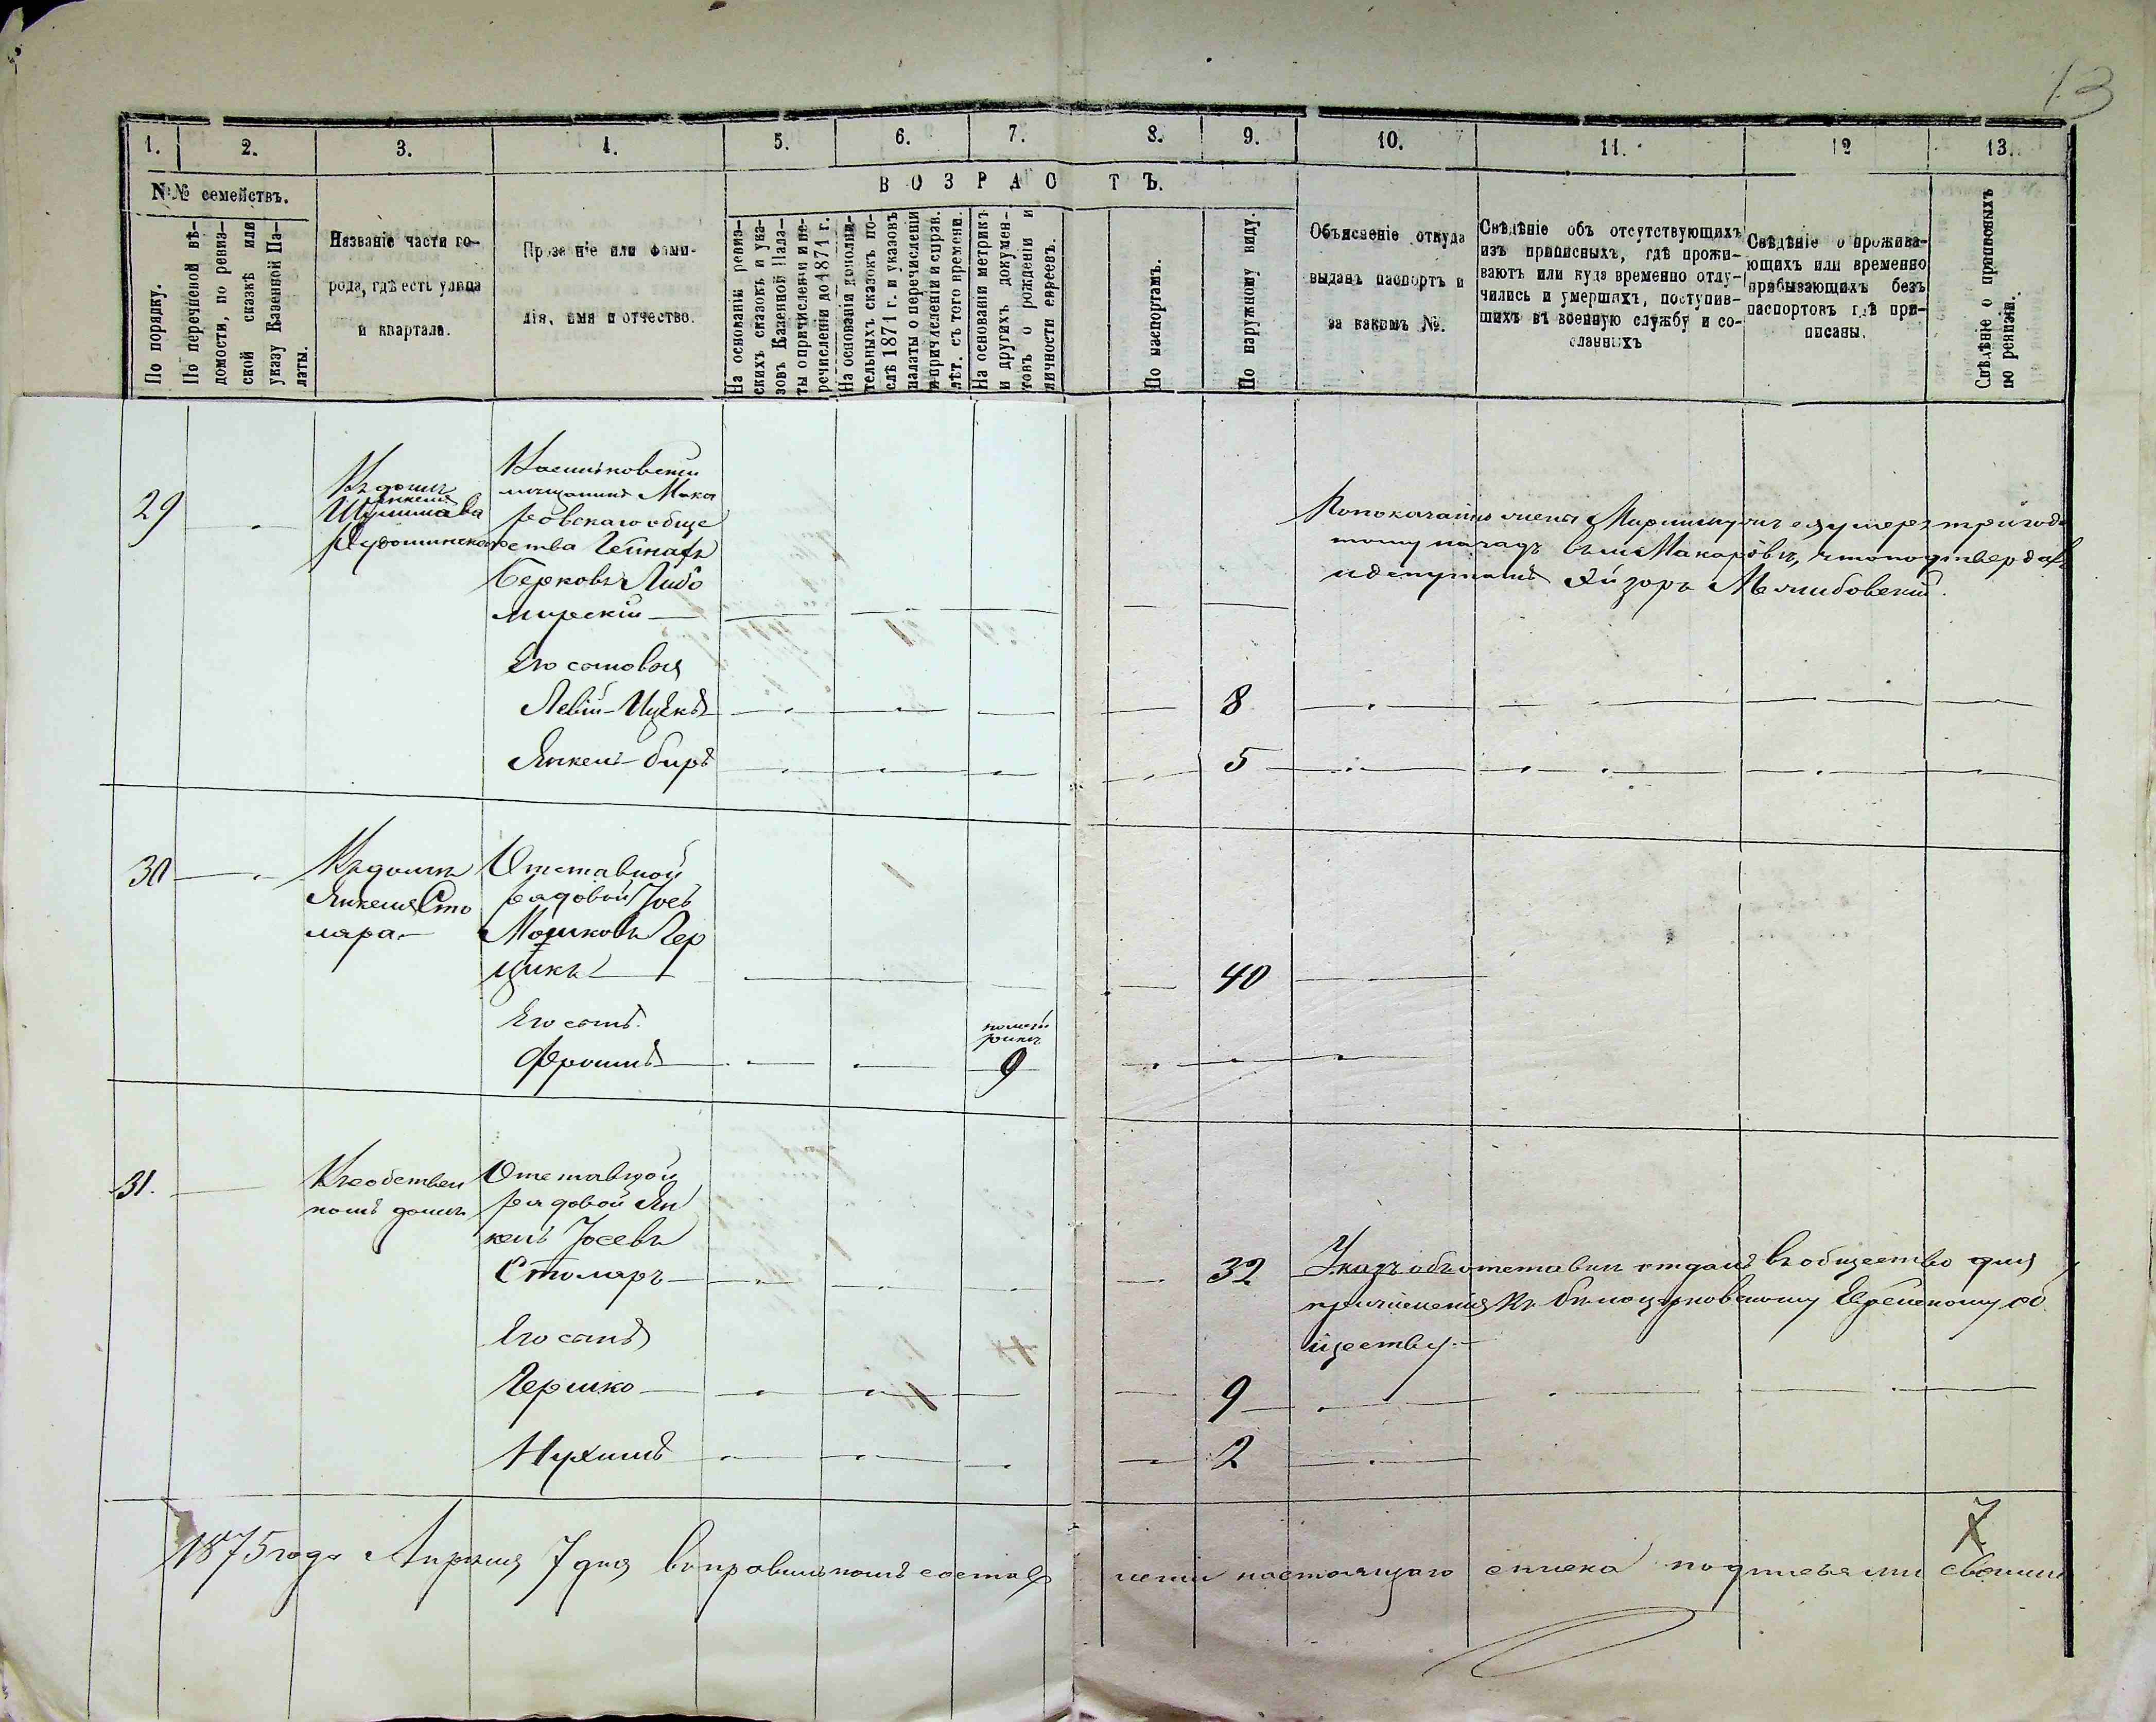 13
1. 2. 3. 4. 5. 6. 7. 8. 9. 10. 11. 12 13.
№№ семействъ.
ВОЗРАСТЪ.
По порядку.
По перечневой вѣ-
домости, по ревиз-
ской сказкѣ или
указу Казенной Па-
латы.
Названіе части го-
рода, гдѣ есть улица
и квартала.
Прозваніе или фами-
лія, имя и отчество.
На основаніи ревиз-
скихъ сказокъ и ука-
зовъ Казенной Пала-
ты о причисленіи и пе-
речисленіи до 1871 г.
На основаніи дополни-
тельныхъ сказокъ по-
слѣ 1871 г. и указовъ
палаты о перечисленіи
и причисленіи и справ.
лѣт. съ того времени.
На основаніи метрикъ
и другихъ докумен-
товъ о рожденіи и
личности евреевъ.
По паспортамъ.
По наружному виду.
Объясненіе откуда
выданъ паспортъ и
за какимъ №.
Свѣдѣніе объ отсутствующихъ
изъ приписныхъ, гдѣ прожи-
ваютъ или куда временно отлу-
чились и умершихъ, поступив-
шихъ въ военную службу и со-
сланныхъ
Свѣдѣніе о прожива-
ющихъ или временно
прибывающихъ безъ
паспортовъ гдѣ при-
писаны.
Свѣдѣніе о приписныхъ
по ревизіи.
29
Въ домѣ
Янкеля
Васильковскій
мѣщанинъ Мака
ровскаго обще
ства
Берковъ Любо
мирскій
По показанію жены его умеръ три года
тому назадъ въ м. Макаровѣ, что подтвердилъ
и депутатъ
Его сыновья
Левій-Ицекъ 8
Янкель-беръ 5
30
Въ домѣ
Янкеля Сто
ляра
Отставной
рядовой Іось
Мошковъ Гер
щикъ 40
Его сынъ
Фроимъ
по мет
рикѣ
9
31.
Въ собствен
номъ домѣ
Отставной
рядовой Ян
кель Іосевъ
Столяръ 32
Указъ объ отставкѣ отданъ въ общество для
причисленія къ бѣлоцерковскому Еврейскому об
ществу.
Его сынъ
Гершко 9
Нухимъ 2
7
1875 года Апрѣля 7 дня въ правильномъ составленіи настоящаго списка подписями своими